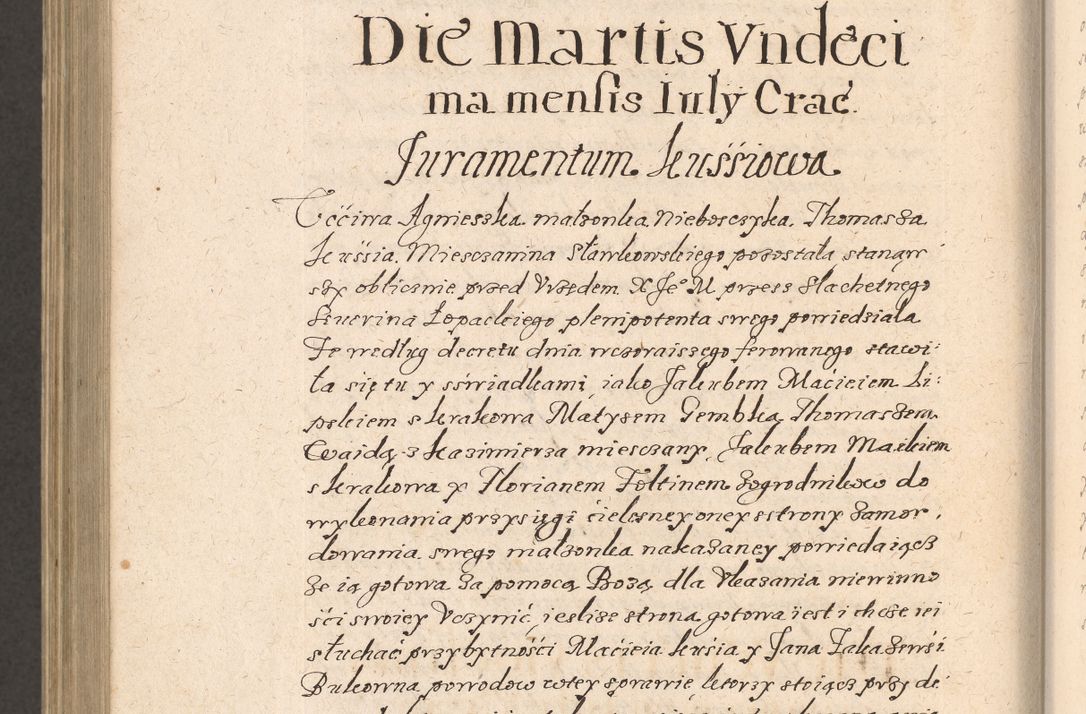 Die Martis Vndeci
ma mensis Iuly Crac.
Juramentum kuśśiowa
Vććiwa Agnieszka małzonka Nieboszczyka Thomasza
kuśśia Mieszczanina Sławkowskiego pozostała stanąw
szy oblicznie przed Vrzędem X Je° M przess Slachetnego
Seuerina Łopackiego plenipotenta swego powiedziala
Ze według decretu dnia wczoraiszego ferowanego stawi:
ła się tu y sświadkami iako Jakubem Maćieiem Li:
pskiem s krakowa Matysem Gembką Thomaszem
Cwaidą z kazimierza miesczany, Jakubem Maćkiem
s krakowa y Florianem Foltinem zogrodnikow do
wykonania przysięgi ćielesney oney zstrony zamor,
dowania swego małzonka nakazaney powiedaiącz
że ią gotowa za pomocą Bozą dla Vkazania niewinno
śći swoiey Vczynić ieslize strona gotowa iest i chcze iei
słuchać przybytnośći Maćieia kuśia y Jana
Bukowna powodow wtey sprawie, ktorzy stoiącz przy de